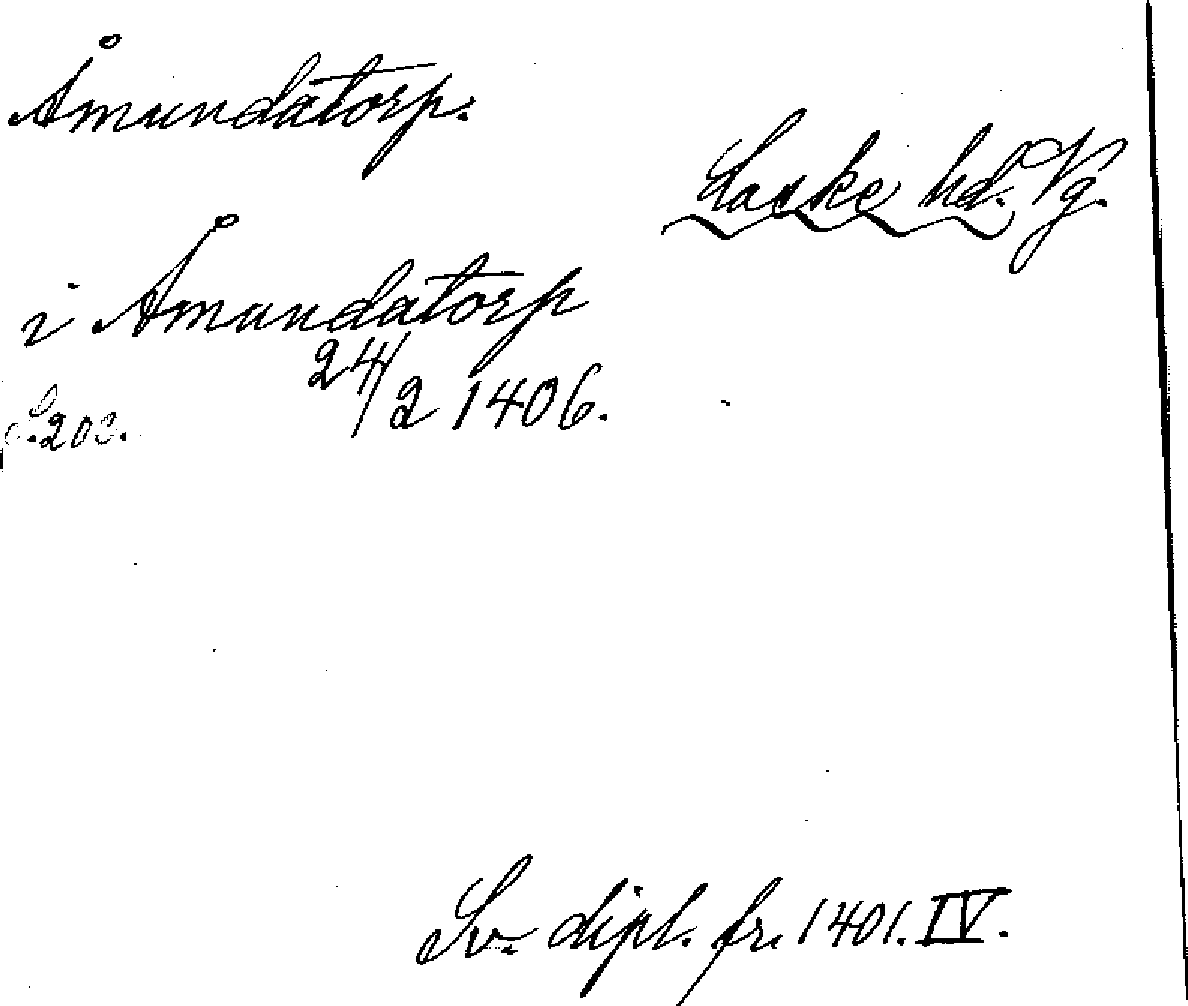 Åmundatorp.
Laske hd. Vg.
i Åmundatorp
24/2 1406.
S. 203.
Sv. dipl. fr. 1401. IV.